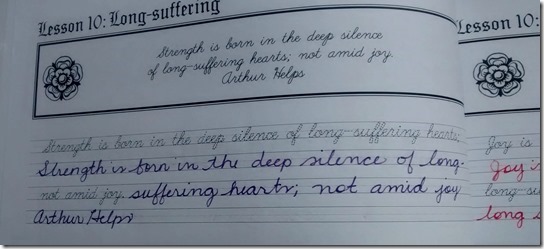 Lesson 10: Long-suffering
Strength is born in the deep silence
of long-suffering hearts; not amid joy.
Arthur Helps
Strength is born in the deep silence of long-suffering hearts;
Strength is born in the deep silence of long-
not amid joy. suffering hearts; not amid joy
Arthur Helps
Lesson 10:
Joy is
Joy is
long-su
long s